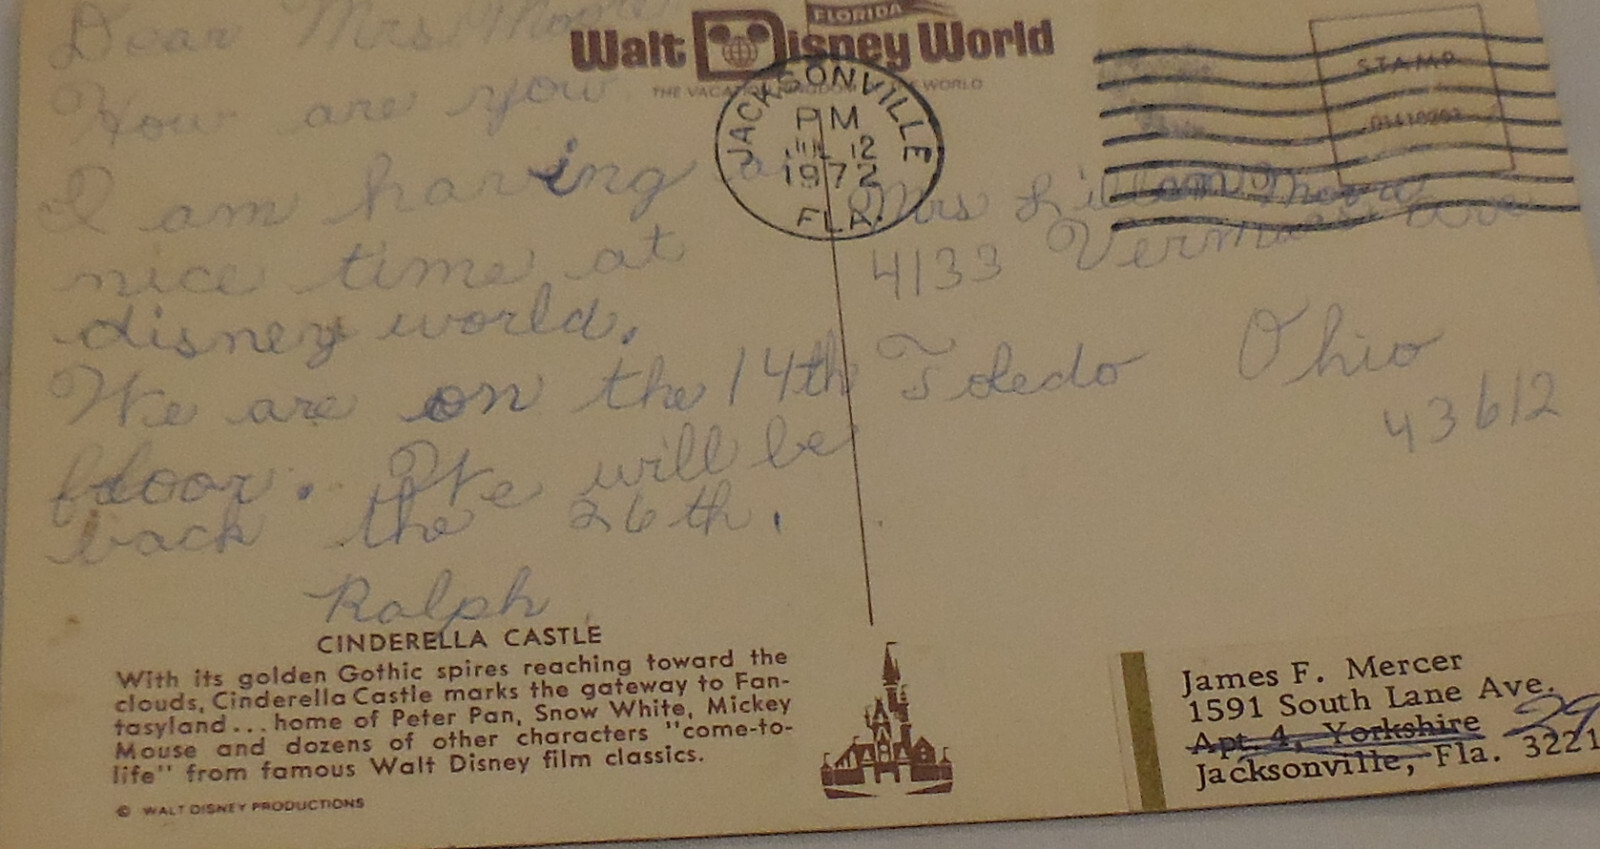 FLORIDA
Walt Disney World
THE VACATION KINGDOM OF THE WORLD
JACKSONVILLE
PM
JUL 12
1972
FLA.
STAMP
Dear Mrs Moore
How are you
I am having a
nice time at
disney world.
We are on the 14th
floor. We will be
back the 26th.
Ralph
Mrs Lillian Moore
4133 Vermaas Ave
Toledo Ohio
43612
CINDERELLA CASTLE
With its golden Gothic spires reaching toward the
clouds, Cinderella Castle marks the gateway to Fan-
tasyland... home of Peter Pan, Snow White, Mickey
Mouse and dozens of other characters "come-to-
life" from famous Walt Disney film classics.
© WALT DISNEY PRODUCTIONS
James F. Mercer
1591 South Lane Ave.
Apt. 4, Yorkshire 29
Jacksonville, Fla. 3221